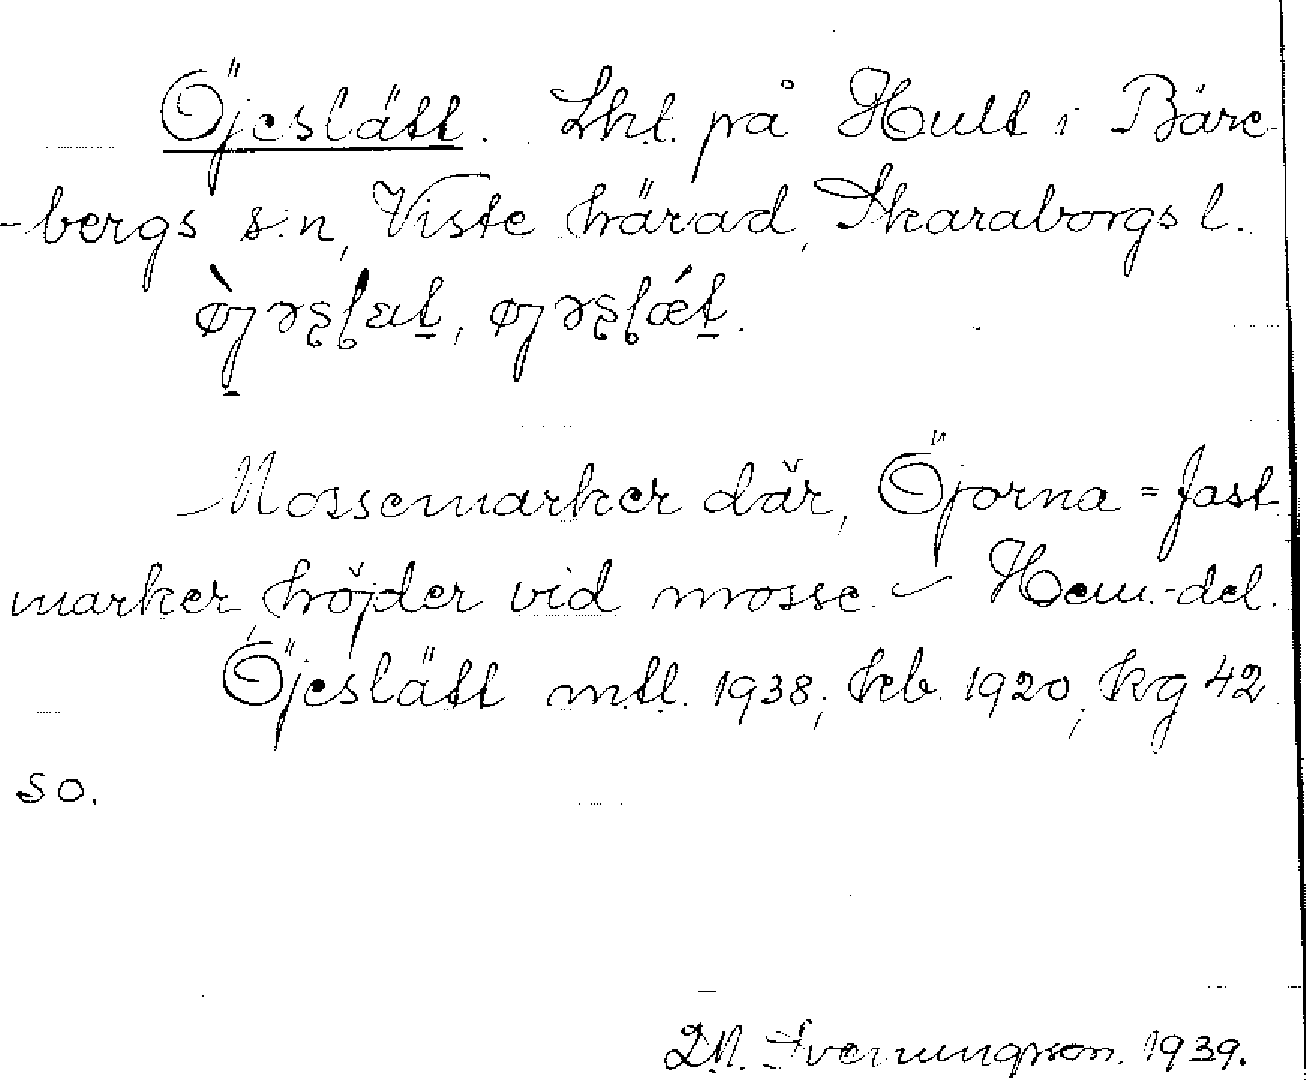 Öjeslätt. Lht. på Hult i Bäre-
-bergs s:n, Viste härad, Skaraborgs l.
Mossemarker där, Öjorna = fast-
marker, höjder vid mosse. – Hem.-del.
Öjeslätt mtl. 1938; hcb. 1920; kg 42
so.
Sverningsson. 1939.